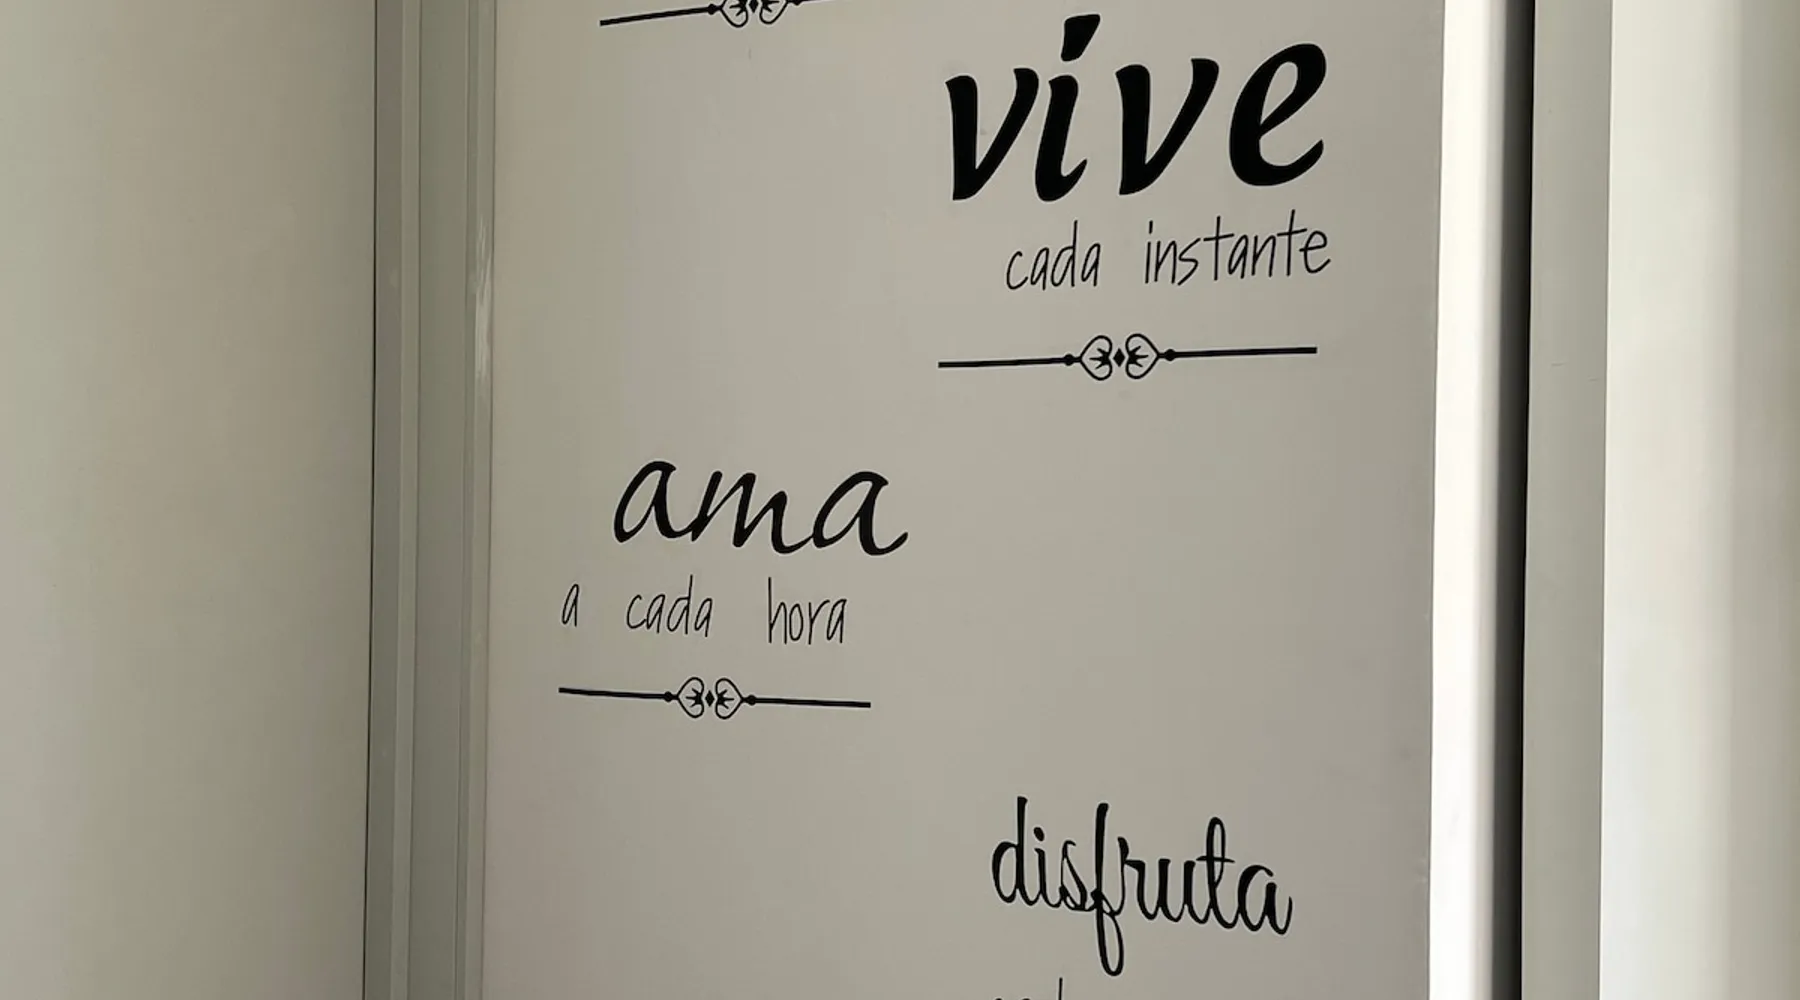 vive
cada instante
ama
a cada hora
disfruta